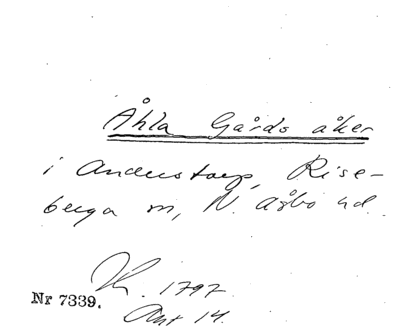 Åhla Gårds åker
i Anderstorp, Rise-
berga sn, N. Åsbo hd.
1797.
Nr 7339.
Akt 14.